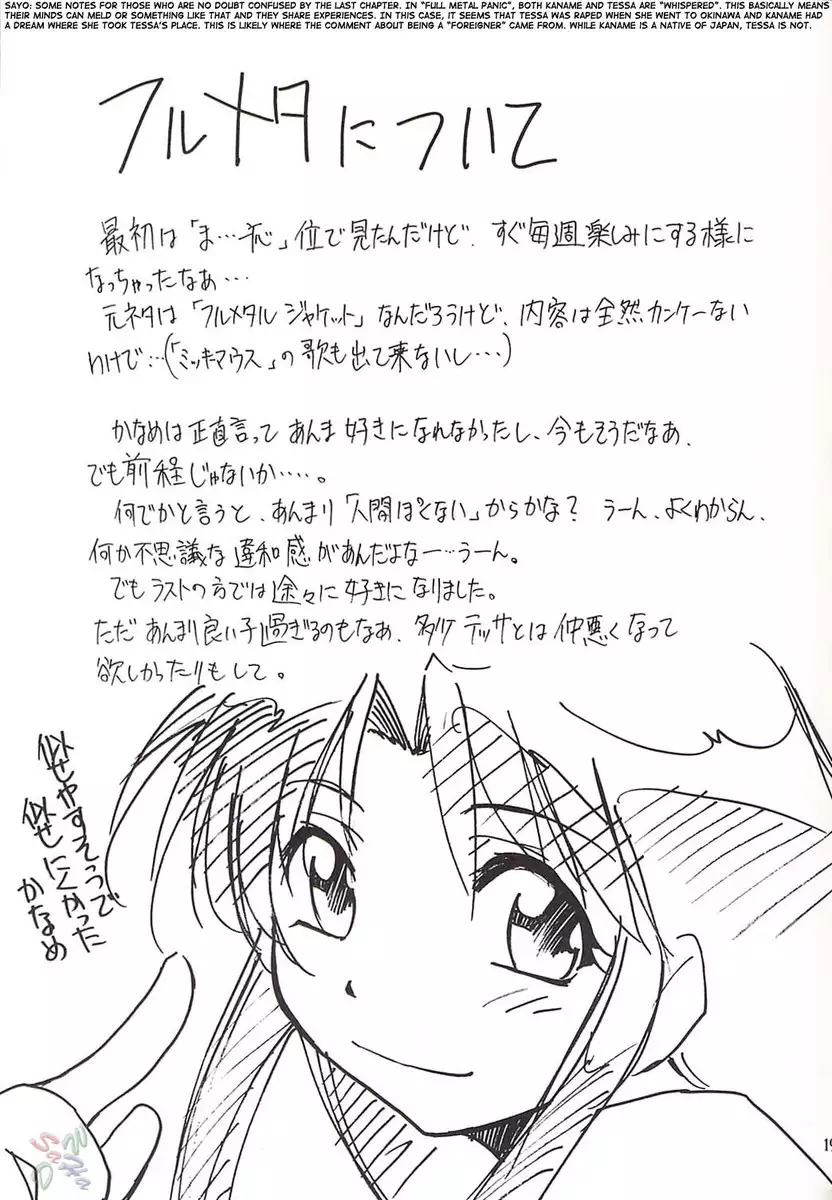 SAYO: SOME NOTES FOR THOSE WHO ARE NO DOUBT CONFUSED BY THE LAST CHAPTER. IN "FULL METAL PANIC", BOTH KANAME AND TESSA ARE "WHISPERED". THIS BASICALLY MEANS
THEIR MINDS CAN MELD OR SOMETHING LIKE THAT AND THEY SHARE EXPERIENCES. IN THIS CASE, IT SEEMS THAT TESSA WAS RAPED WHEN SHE WENT TO OKINAWA AND KANAME HAD
A DREAM WHERE SHE TOOK TESSA'S PLACE. THIS IS LIKELY WHERE THE COMMENT ABOUT BEING A "FOREIGNER" CAME FROM. WHILE KANAME IS A NATIVE OF JAPAN, TESSA IS NOT.
フルメタについて
最初は「ま…」位で見たんだけど、すぐ毎週楽しみにする様に
なっちゃったなぁ…
元ネタは「フルメタルジャケット」なんだろうけど、内容は全然カンケーない
わけで…(「ミッキーマウス」の歌も出て来ないし…)
かなめは正直言って あんま好きになれなかったし、今もそうだなぁ、
でも前程じゃないか…。
何でかと言うと、あんまり「人間ぽくない」からかな? うーん、よくわからん、
何か不思議な違和感があんだよなー…うーん。
でもラストの方では途々に好きになりました。
ただあんまり良い子過ぎるのもなぁ、多少テッサとは仲悪くなって
欲しかったりもして。
似せやすそうで
似せにくかった
かなめ
19